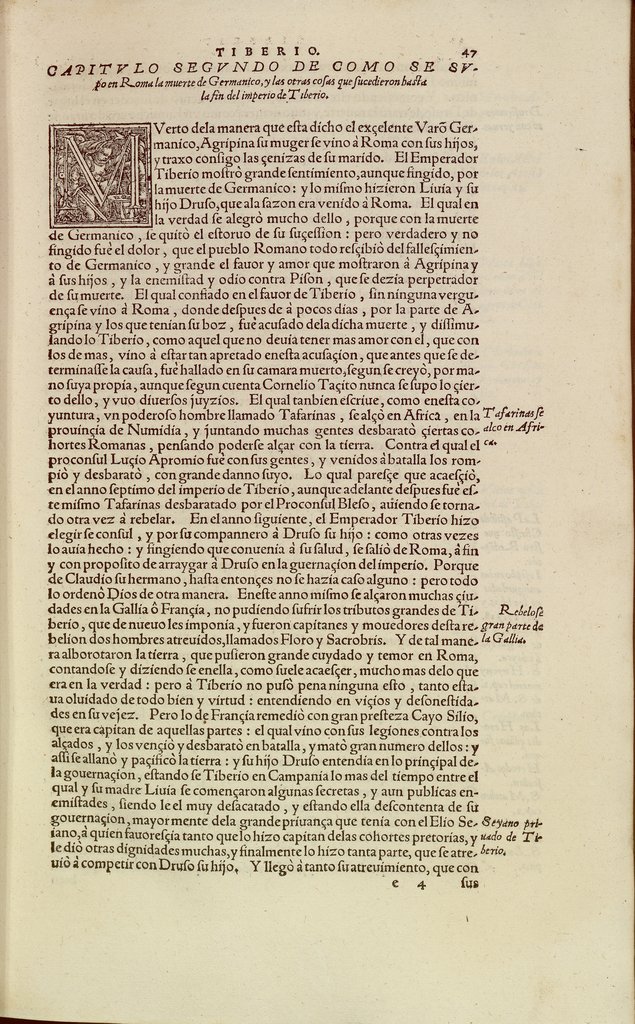 TIBERIO. 47
CAPITVLO SEGVNDO DE COMO SE SV-
po en Roma la muerte de Germanico, y las otras cosas que sucedieron hasta
la fin del imperio de Tiberio.
MVerto dela manera que esta dicho el exçelente Varõ Ger-
manico, Agripina su muger se vino à Roma con sus hijos,
y traxo consigo las çenizas de su marido. El Emperador
Tiberio mostrò grande sentimiento, aunque fingido, por
la muerte de Germanico: y lo mismo hizieron Liuia y su
hijo Druso, que ala sazon era venido à Roma. El qual en
la verdad se alegrò mucho dello, porque con la muerte
de Germanico, se quitò el estoruo de su suçession: pero verdadero y no
fingido fuè el dolor, que el pueblo Romano todo resçibiò del fallesçimien-
to de Germanico, y grande el fauor y amor que mostraron à Agripina y
à sus hijos, y la enemistad y odio contra Pison, que se dezia perpetrador
de su muerte. El qual confiado en el fauor de Tiberio, sin ninguna vergu-
ença se vino à Roma, donde despues de à pocos dias, por la parte de A-
gripina y los que tenian su boz, fuè acusado dela dicha muerte, y dissimu-
lando lo Tiberio, como aquel que no deuia tener mas amor con el, que con
los de mas, vino à estar tan apretado enesta acusaçion, que antes que se de-
terminasse la causa, fuè hallado en su camara muerto, segun se creyò, por ma-
no suya propia, aunque segun cuenta Cornelio Taçito nunca se supo lo çier-
to dello, y vuo diuersos juyzios. El qual tanbien escriue, como enesta co-
yuntura, vn poderoso hombre llamado Tafarinas, se alçò en Africa, en la
Tafarinas se
prouinçia de Numidia, y juntando muchas gentes desbaratò çiertas co-
alço en Afri-
hortes Romanas, pensando poderse alçar con la tierra. Contra el qual el
ca.
proconsul Luçio Apromio fuè con sus gentes, y venidos à batalla los rom-
piò y desbaratò, con grande danno suyo. Lo qual paresçe que acaesçiò,
en el anno septimo del imperio de Tiberio, aunque adelante despues fuè es-
te mismo Tafarinas desbaratado por el Proconsul Bleso, auiendo se torna-
do otra vez à rebelar. En el anno siguiente, el Emperador Tiberio hizo
elegir se consul, y por su compannero à Druso su hijo: como otras vezes
lo auia hecho: y fingiendo que conuenia à su salud, se saliò de Roma, à fin
y con proposito de arraygar à Druso en la guernaçion del imperio. Porque
de Claudio su hermano, hasta entonçes no se hazia caso alguno: pero todo
lo ordenò Dios de otra manera. Eneste anno mismo se alçaron muchas çiu-
dades en la Gallia ô Françia, no pudiendo sufrir los tributos grandes de Ti-
Rebelose
berio, que de nueuo les imponia, y fueron capitanes y mouedores desta re-
gran parte de
belion dos hombres atreuidos, llamados Floro y Sacrobris. Y de tal mane-
la Gallia.
ra alborotaron la tierra, que pusieron grande cuydado y temor en Roma,
contandose y diziendo se enella, como suele acaesçer, mucho mas delo que
era en la verdad: pero à Tiberio no pusò pena ninguna esto, tanto esta-
ua oluidado de todo bien y virtud: entendiendo en viçios y desonestida-
des en su vejez. Pero lo de Françia remediò con gran presteza Cayo Silio,
que era capitan de aquellas partes: el qual vino con sus legiones contra los
alçados, y los vençiò y desbaratò en batalla, y matò gran numero dellos: y
assi se allanò y paçificò la tierra: y su hijo Druso entendia en lo prinçipal de-
la gouernaçion, estando se Tiberio en Campania lo mas del tiempo entre el
qual y su madre Liuia se començaron algunas secretas, y aun publicas en-
emistades, siendo le el muy desacatado, y estando ella descontenta de su
gouernaçion, mayor mente dela grande priuança que tenia con el Elio Se-
Seyano pri-
iano, à quien fauoresçia tanto que lo hizo capitan delas cohortes pretorias, y
uado de Ti-
le diò otras dignidades muchas, y finalmente lo hizo tanta parte, que se atre-
berio.
uiò à competir con Druso su hijo. Y llegò à tanto su atreuimiento, que con
e 4 sus